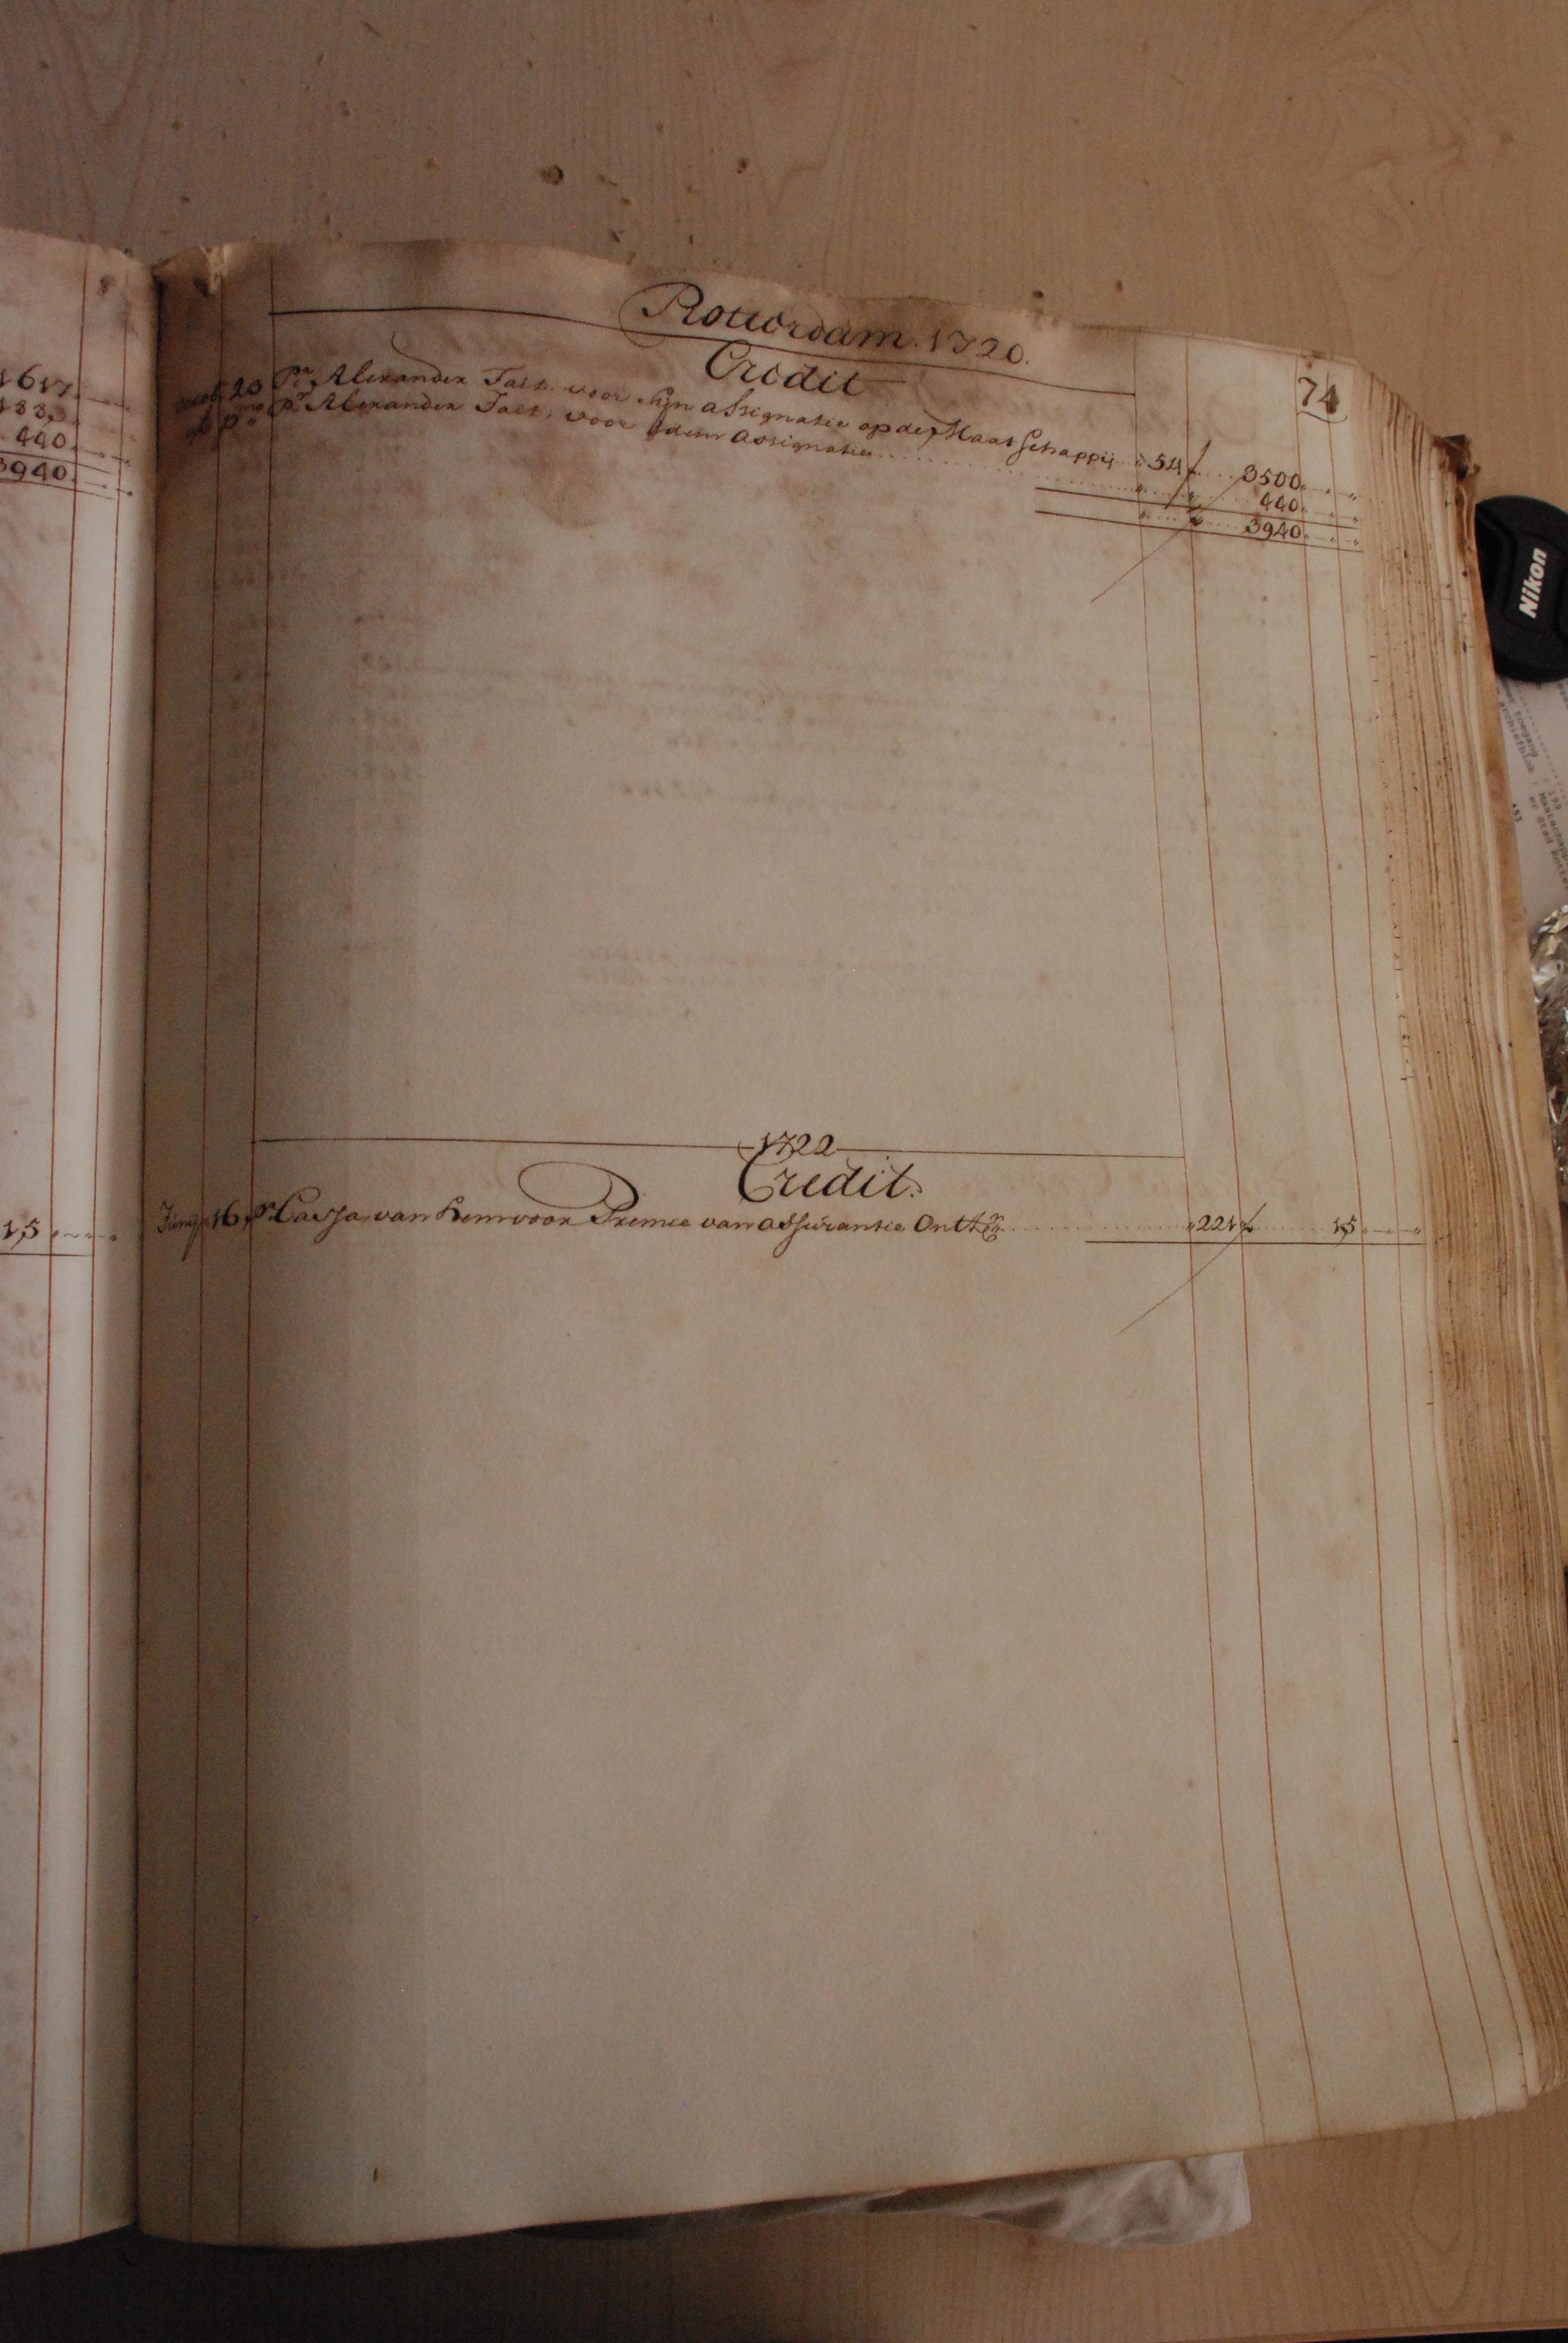 1617
133
440
3940
15
Rotterdam 1720.
Credit
74
20 Pr. Alexander Tait. voor sijn assignatie op dese Maatschappij 54 f 3500
po. Pr. Alexander Tait, voor idem assignatie 440
3940
1722
Credit.
Junij 16 pr. Cassa, van hem voor Premie van assurantie Ontfn. 221 f 15
Nikon